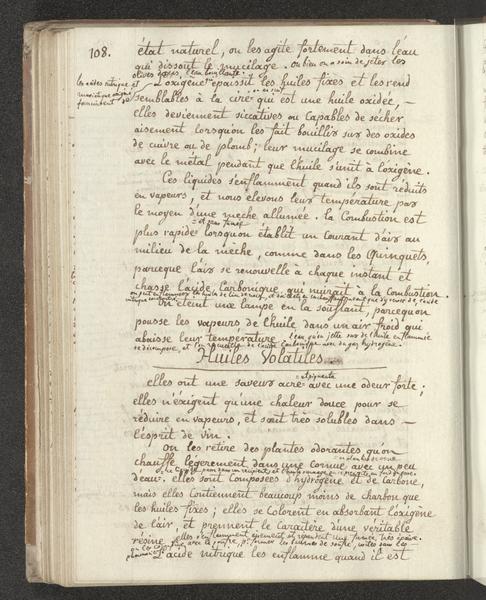 108.
état naturel, ou les agite fortement dans l'eau
qui dissout le mucilage. ou bien on a soin de jeter les
olives dans l'eau bouillante.
les acides nitrique et
muriatique oxigéné
l'oxigène épaissit les huiles fixes et les rend
semblables à la cire qui est une huile oxidée, —
elles deviennent siccatives ou capables de sécher
aisement lorsqu'on les fait bouillir sur des oxides
de cuivre ou de plomb; leur mucilage se combine
avec le métal pendant que l'huile s'unit à l'oxigène.
Ces liquides s'enflamment quand ils sont réduits
en vapeurs, et nous elevons leur température par
le moyen d'une mèche allumée. la Combustion est
et sans fumée
plus rapide lorsqu'on établit un Courant d'air au
milieu de la mèche, comme dans les Quinquets,
parceque l'air se renouvelle à chaque instant et
chasse l'acide Carbonique qui nuirait à la Combustion.
on éteint une lampe en la soufflant, parcequ'on
pousse les vapeurs de l'huile dans un air froid qui
abaisse leur température. l'eau qu'on jette sur de l'huile enflammée
se décompose, et
Huiles Volatiles
et piquante
elles ont une saveur acre avec une odeur forte;
elles n'éxigent qu'une chaleur douce pour se
réduire en vapeurs, et sont très solubles dans —
l'esprit de vin.
On les retire des plantes odorantes qu'on
chauffe légerement dans une Cornue avec un peu
d'eau. elles sont Composées d'hydrogène et de Carbone,
mais elles Contiennent beaucoup moins de charbon que
les huiles fixes; elles se Colorent en absorbant l'oxigène
de l'air, et prennent le Caractère d'une véritable
résine. elles s'enflamment aisement et répandent une fumée très épaisse.
l'acide nitrique les enflamme quand il est